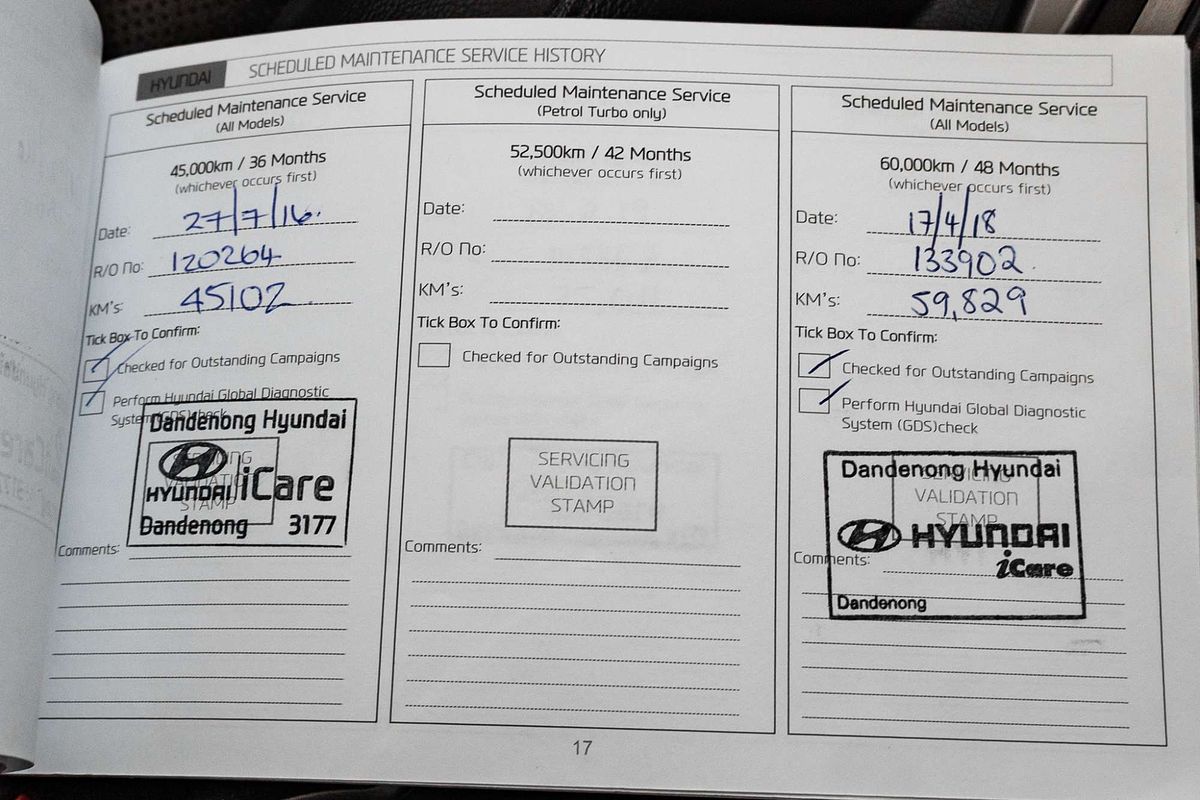 HYUNDAI SCHEDULED MAINTENANCE SERVICE HISTORY
Scheduled Maintenance Service
(All Models)
45,000km / 36 Months
(whichever occurs first)
Date: 27/7/16.
R/O No: 120264
KM's: 45102
Tick Box To Confirm:
Checked for Outstanding Campaigns
Perform Hyundai Global Diagnostic
System (GDS)check
Dandenong Hyundai
SERVICING
VALIDATION
STAMP
HYUNDAI iCare
Dandenong 3177
Comments:
Scheduled Maintenance Service
(Petrol Turbo only)
52,500km / 42 Months
(whichever occurs first)
Date:
R/O No:
KM's:
Tick Box To Confirm:
Checked for Outstanding Campaigns
SERVICING
VALIDATION
STAMP
Comments:
Scheduled Maintenance Service
(All Models)
60,000km / 48 Months
(whichever occurs first)
Date: 17/4/18
R/O No: 133902
KM's: 59,829
Tick Box To Confirm:
Checked for Outstanding Campaigns
Perform Hyundai Global Diagnostic
System (GDS)check
Dandenong Hyundai
SERVICING
VALIDATION
STAMP
HYUNDAI
iCare
Comments:
Dandenong
17